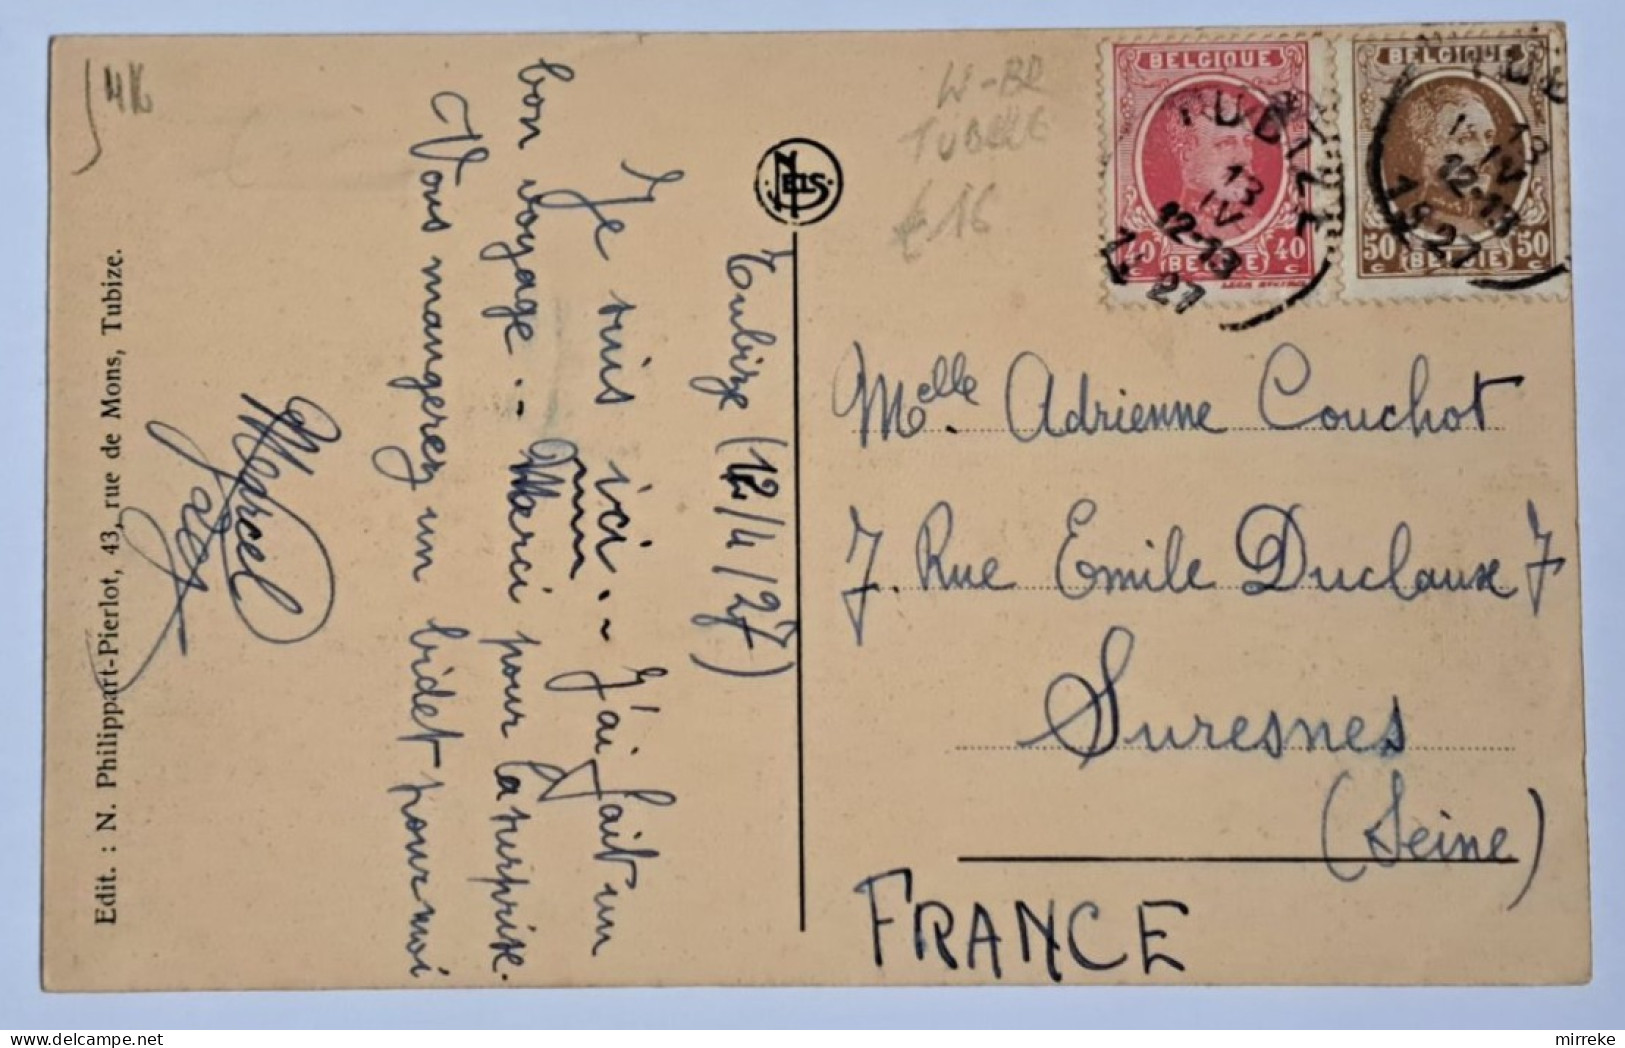 4K
W-BR
TUBIZE
€16
NELS
BELGIQUE
40 40
BELGIE
BELGIQUE
50 50
BELGIE
TUBIZE
13
IV
12-13
1927
13
IV
12-13
1927
Tubize (12/4/27)
Je suis ici.- J'ai fait un
bon voyage.- Merci pour la surprise.
Vous mangerez un bidet pour moi
Marcel
Edit. : N. Philippart-Pierlot, 43, rue de Mons, Tubize.
Melle. Adrienne Couchot
7. Rue Emile Duclaux 7
Suresnes
(Seine)
FRANCE
mirreke